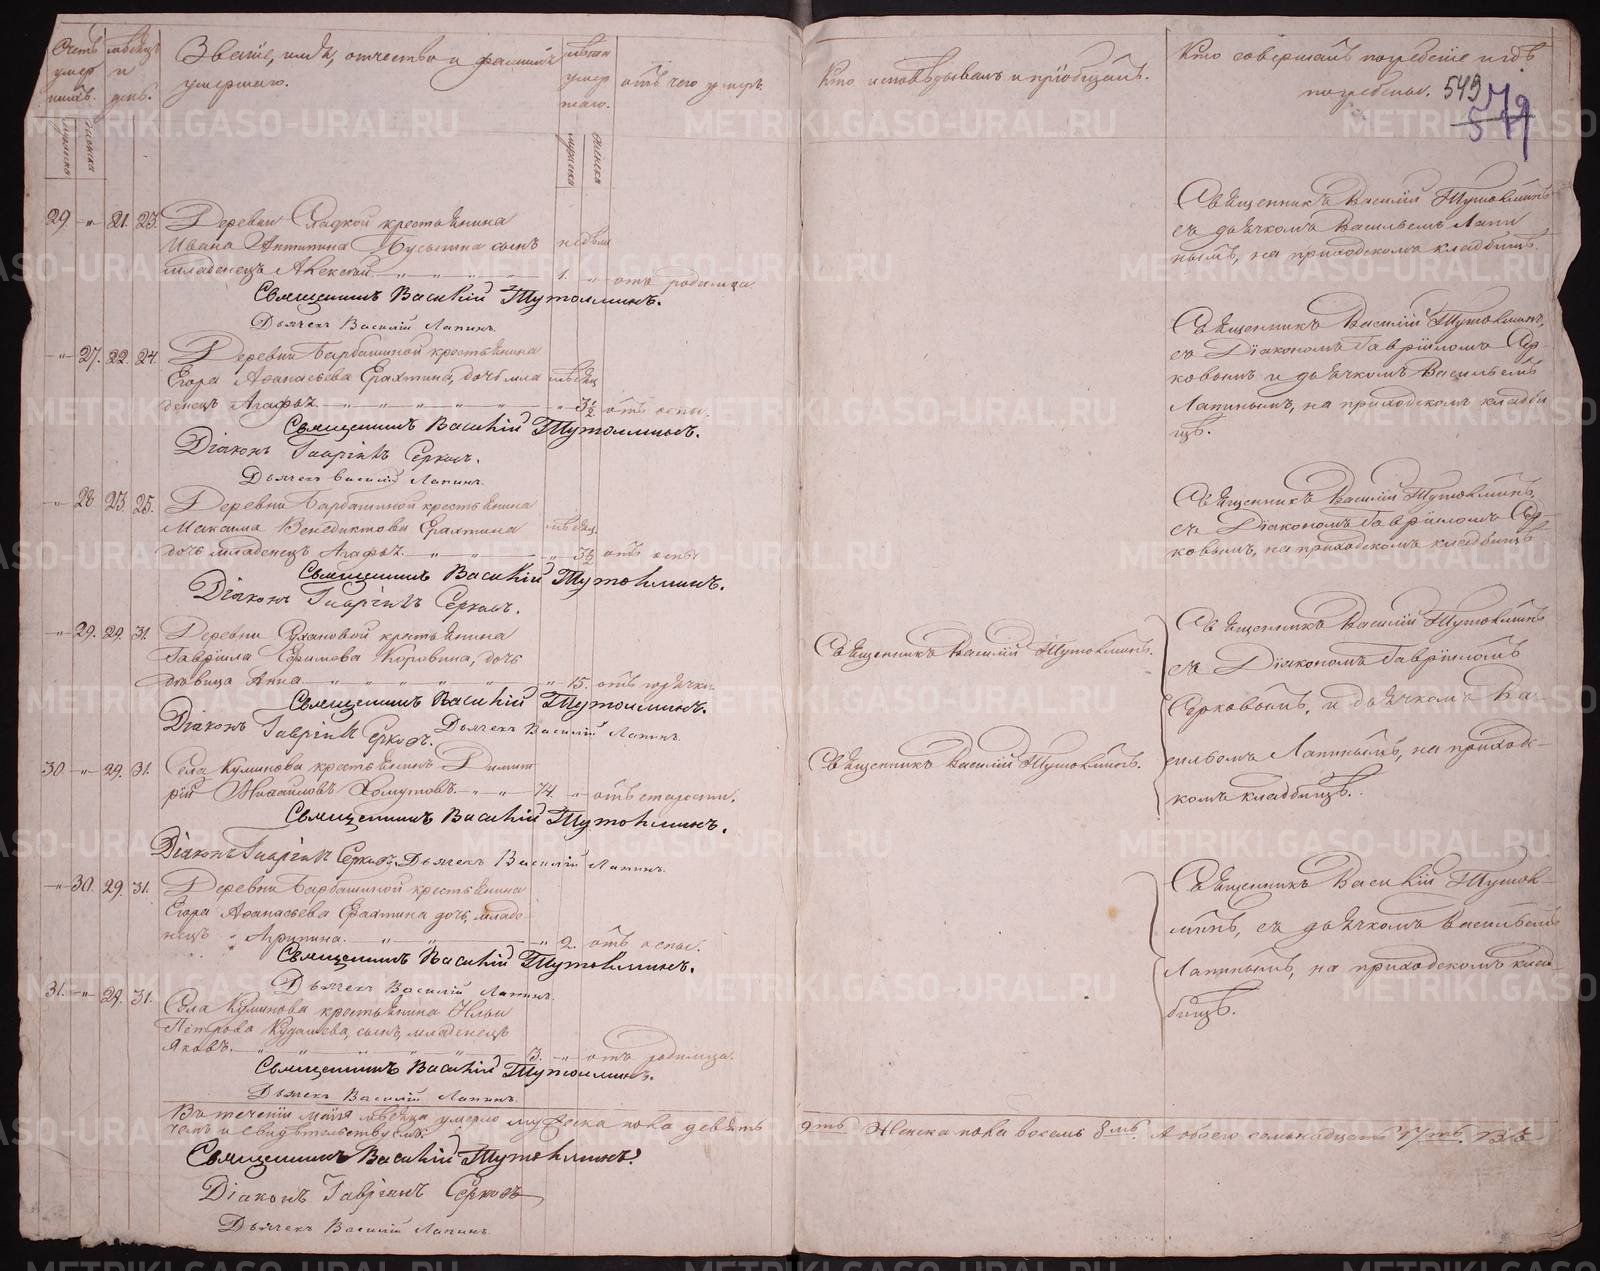 Счетъ умер шихъ.
мѣсяцъ и день.
Званіе, имя, отчество и фамилія
умершаго.
лѣта умер шаго.
отъ чего умеръ.
Кто исповѣдывалъ и пріобщалъ.
Кто совершалъ погребеніе и гдѣ
погребены. 549
мужеска
женска
мужеска
женска
29 -"- 21. 23. Деревни Гладкой крестьянина
Ивана Антипина сынъ недѣли
младенецъ Алексѣй. 1. -"- отъ родимца
Священникъ Василій Тутолминъ.
Дьячекъ Василій Лапинъ.
Священникъ Василій Тутолминъ
съ дьячкомъ Васильемъ Лапи
нымъ, на приходскомъ кладбищѣ.
-"- 27. 22. 24. Деревни Барбашиной крестьянина
Егора Афанасьева Ерахтина, дочь мла мѣсяц
денецъ Агафья. -"- 3½ отъ оспы.
Священникъ Василій Тутолминъ.
Діаконъ Гавріилъ Серковъ.
Дьячекъ Василій Лапинъ.
Священникъ Василій Тутолминъ,
съ Діакономъ Гавріиломъ Сер-
ковымъ и дьячкомъ Васильемъ
Лапинымъ, на приходскомъ кладби
щѣ.
-"- 28 23. 25. Деревни Барбашиной крестьянина
Максима Венедиктова Ерахтина мѣсяц.
дочь младенецъ Агафья. -"- 3½ отъ оспы
Священникъ Василій Тутолминъ.
Діаконъ Гавріилъ Серковъ.
Священникъ Василій Тутолминъ,
съ Діакономъ Гавріиломъ Сер-
ковымъ, на приходскомъ кладбищѣ
-"- 29. 29. 31. Деревни крестьянина
Гавріила Ефимова Коровина, дочь
дѣвица Анна. -"- 15. отъ горячки.
Священникъ Василій Тутолминъ.
Діаконъ Гавріилъ Серковъ. Дьячекъ Василій Лапинъ.
Священникъ Василій Тутолминъ.
Священникъ Василій Тутолминъ
съ Діакономъ Гавріиломъ
Серковымъ, и дьячкомъ Ва-
сильемъ Лапинымъ, на приход-
комъ кладбищѣ.
30 -"- 29. 31. Села Куликова крестьянинъ Димит
рій Михайловъ Хомутовъ. 74. -"- отъ старости.
Священникъ Василій Тутолминъ.
Діаконъ Гавріилъ Серковъ. Дьячекъ Василій Лапинъ.
Священникъ Василій Тутолминъ.
-"- 30. 29. 31. Деревни Барбашиной крестьянина
Егора Афанасьева Ерахтина дочь, младе-
нецъ Агрипина. -"- 2. отъ оспы.
Священникъ Василій Тутолминъ.
Дьячекъ Василій Лапинъ.
Священникъ Василій Тутол-
минъ, съ дьячкомъ Васильемъ
Лапинымъ, на приходскомъ клад-
бищѣ.
31. -"- 29. 31. Села Куликова крестьянина Ильи
Петрова сынъ, младенецъ
Яковъ. 3. -"- отъ родимца.
Священникъ Василій Тутолминъ.
Дьячекъ Василій Лапинъ.
Въ теченіи маія мѣсяца умерло мужеска пола девять 9ть Женска пола восемь 8мь. А обоего семьнадцать 17ть. Въ
чемъ и свидѣтельствуемъ.
Священникъ Василій Тутолминъ.
Діаконъ Гавріилъ Серковъ
Дьячекъ Василій Лапинъ.
METRIKI.GASO-URAL.RU